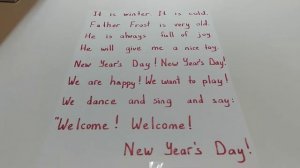 It is winter It is cold.
Father Frost is very old.
He is always full of joy.
He will give me a nice toy.
New Year's Day! New Year's Day!
We are happy! We want to play!
We dance and sing and say:
"Welcome! Welcome!
New Year's Day!